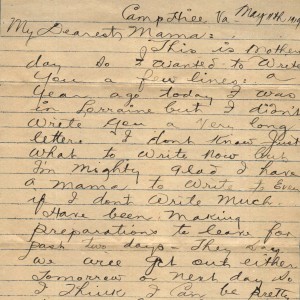 Camp Hill Va - May 11th 1919
My Dearest Mama:
This is Mothers
day So I wanted to Write
you a few lines. a
year ago today I was
in Lorraine but I didn't
Write you a very long
letter. I dont Know Just
What to Write Now but
I'm Mighty Glad I have
a Mama to Write to Even
if I dont Write Much.
Have been Making
preparations to leave for
past two days - They Say
we will get out either
tomorrow or next day So
I Think I Can be pretty